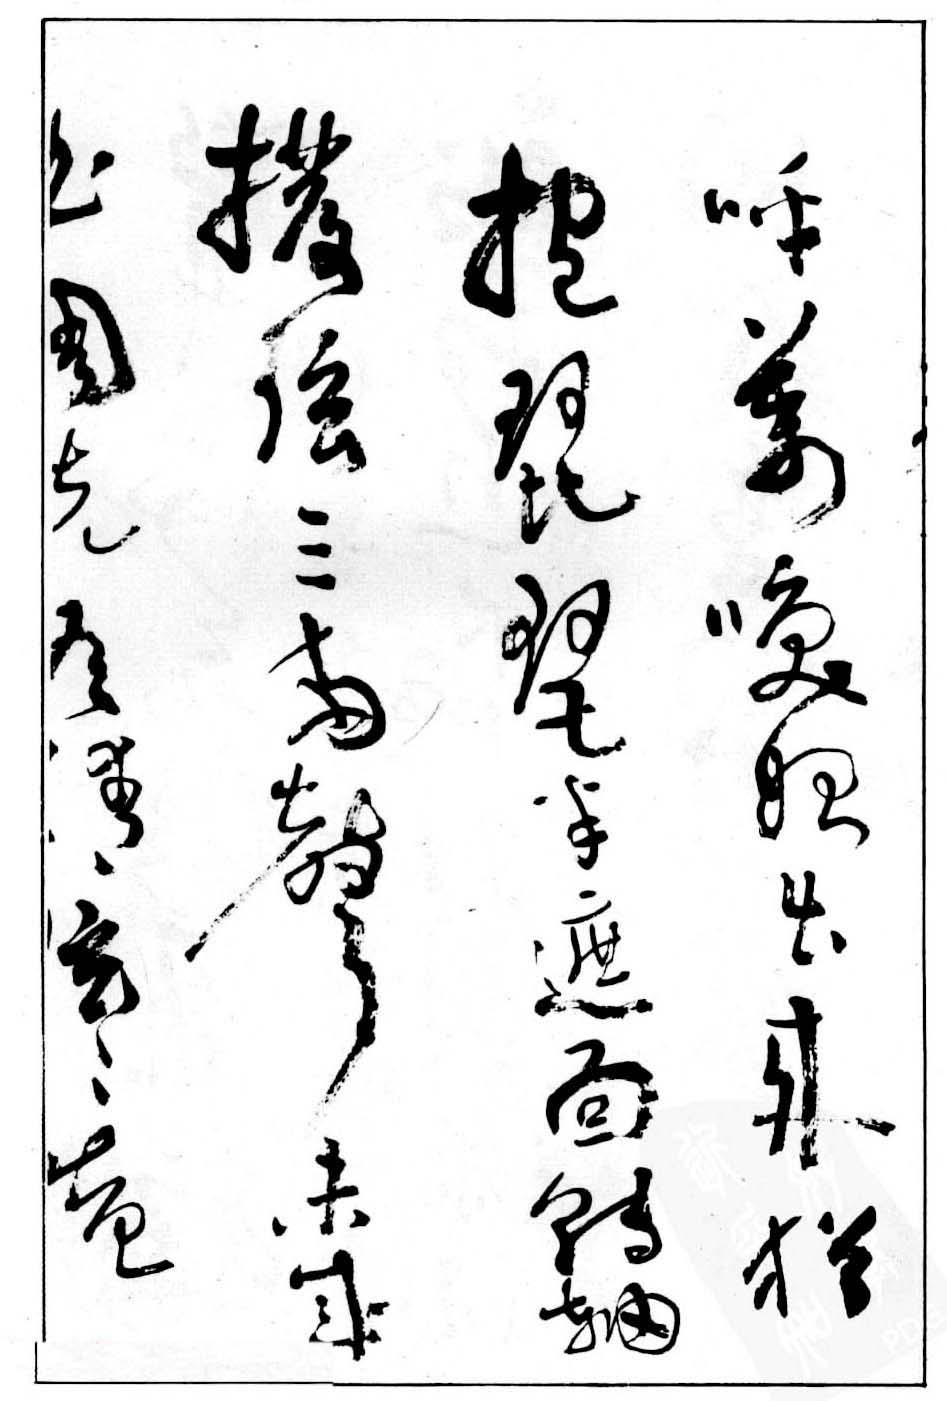 呼萬喚始出來猶
抱琵琶半遮面轉軸
撥弦三兩聲未成
調先有情弦掩